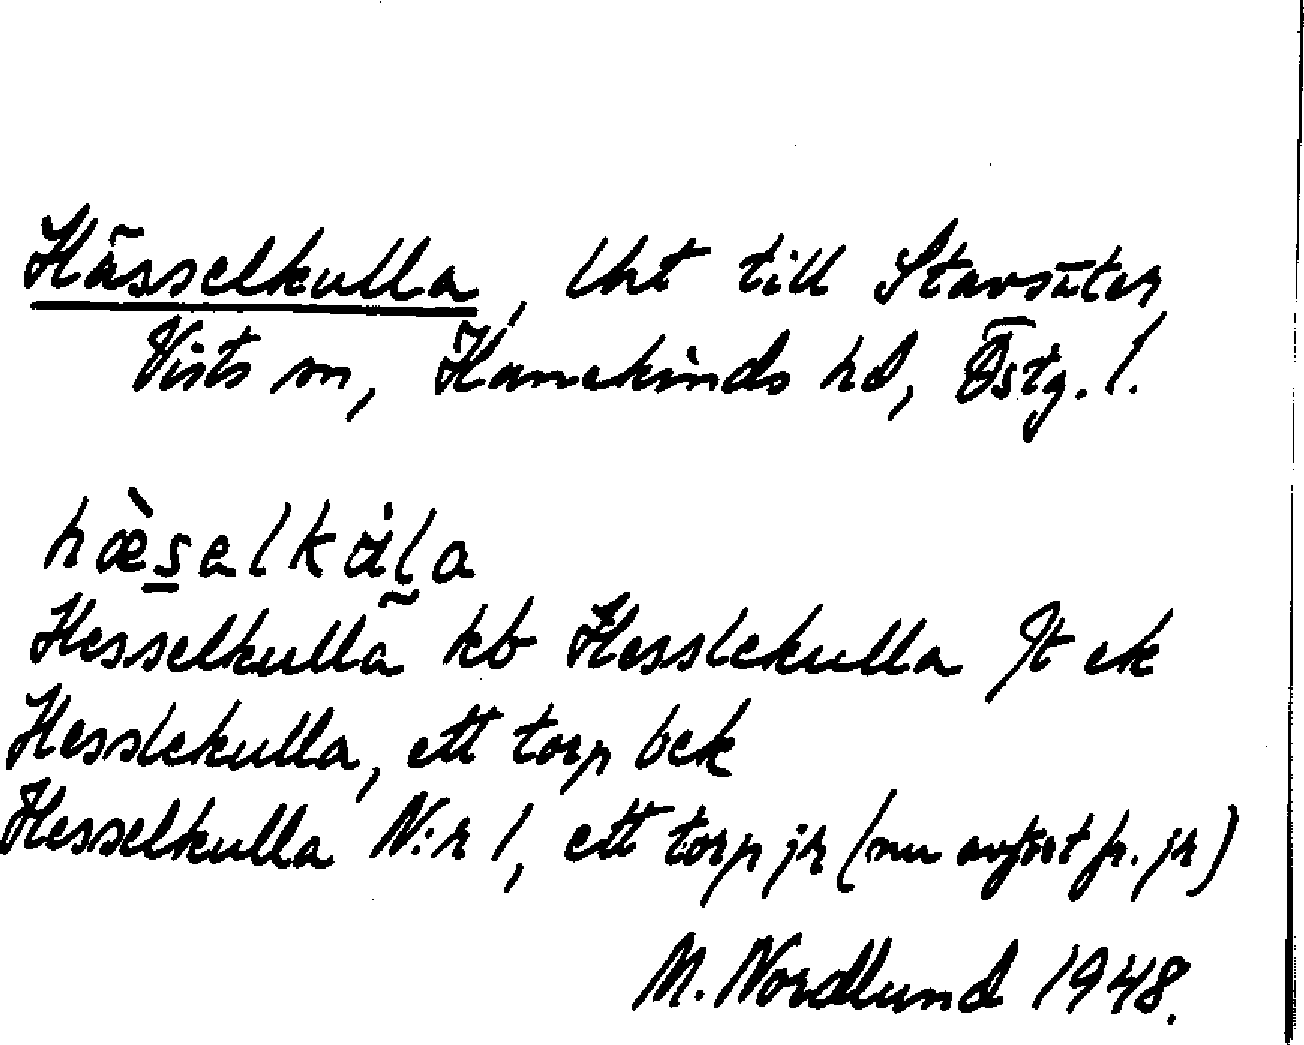 Hässelkulla, lht till Starsäter
Vists sn, Hanekinds hd, Östg. l.
hæ̀selkȧla
Hesselkulla kb Hesslekulla Jt ek
Hesslekulla, ett torp bek
Hesselkulla N:r 1, ett torp jr (nu avfört fr. jr)
M. Nordlund 1948.